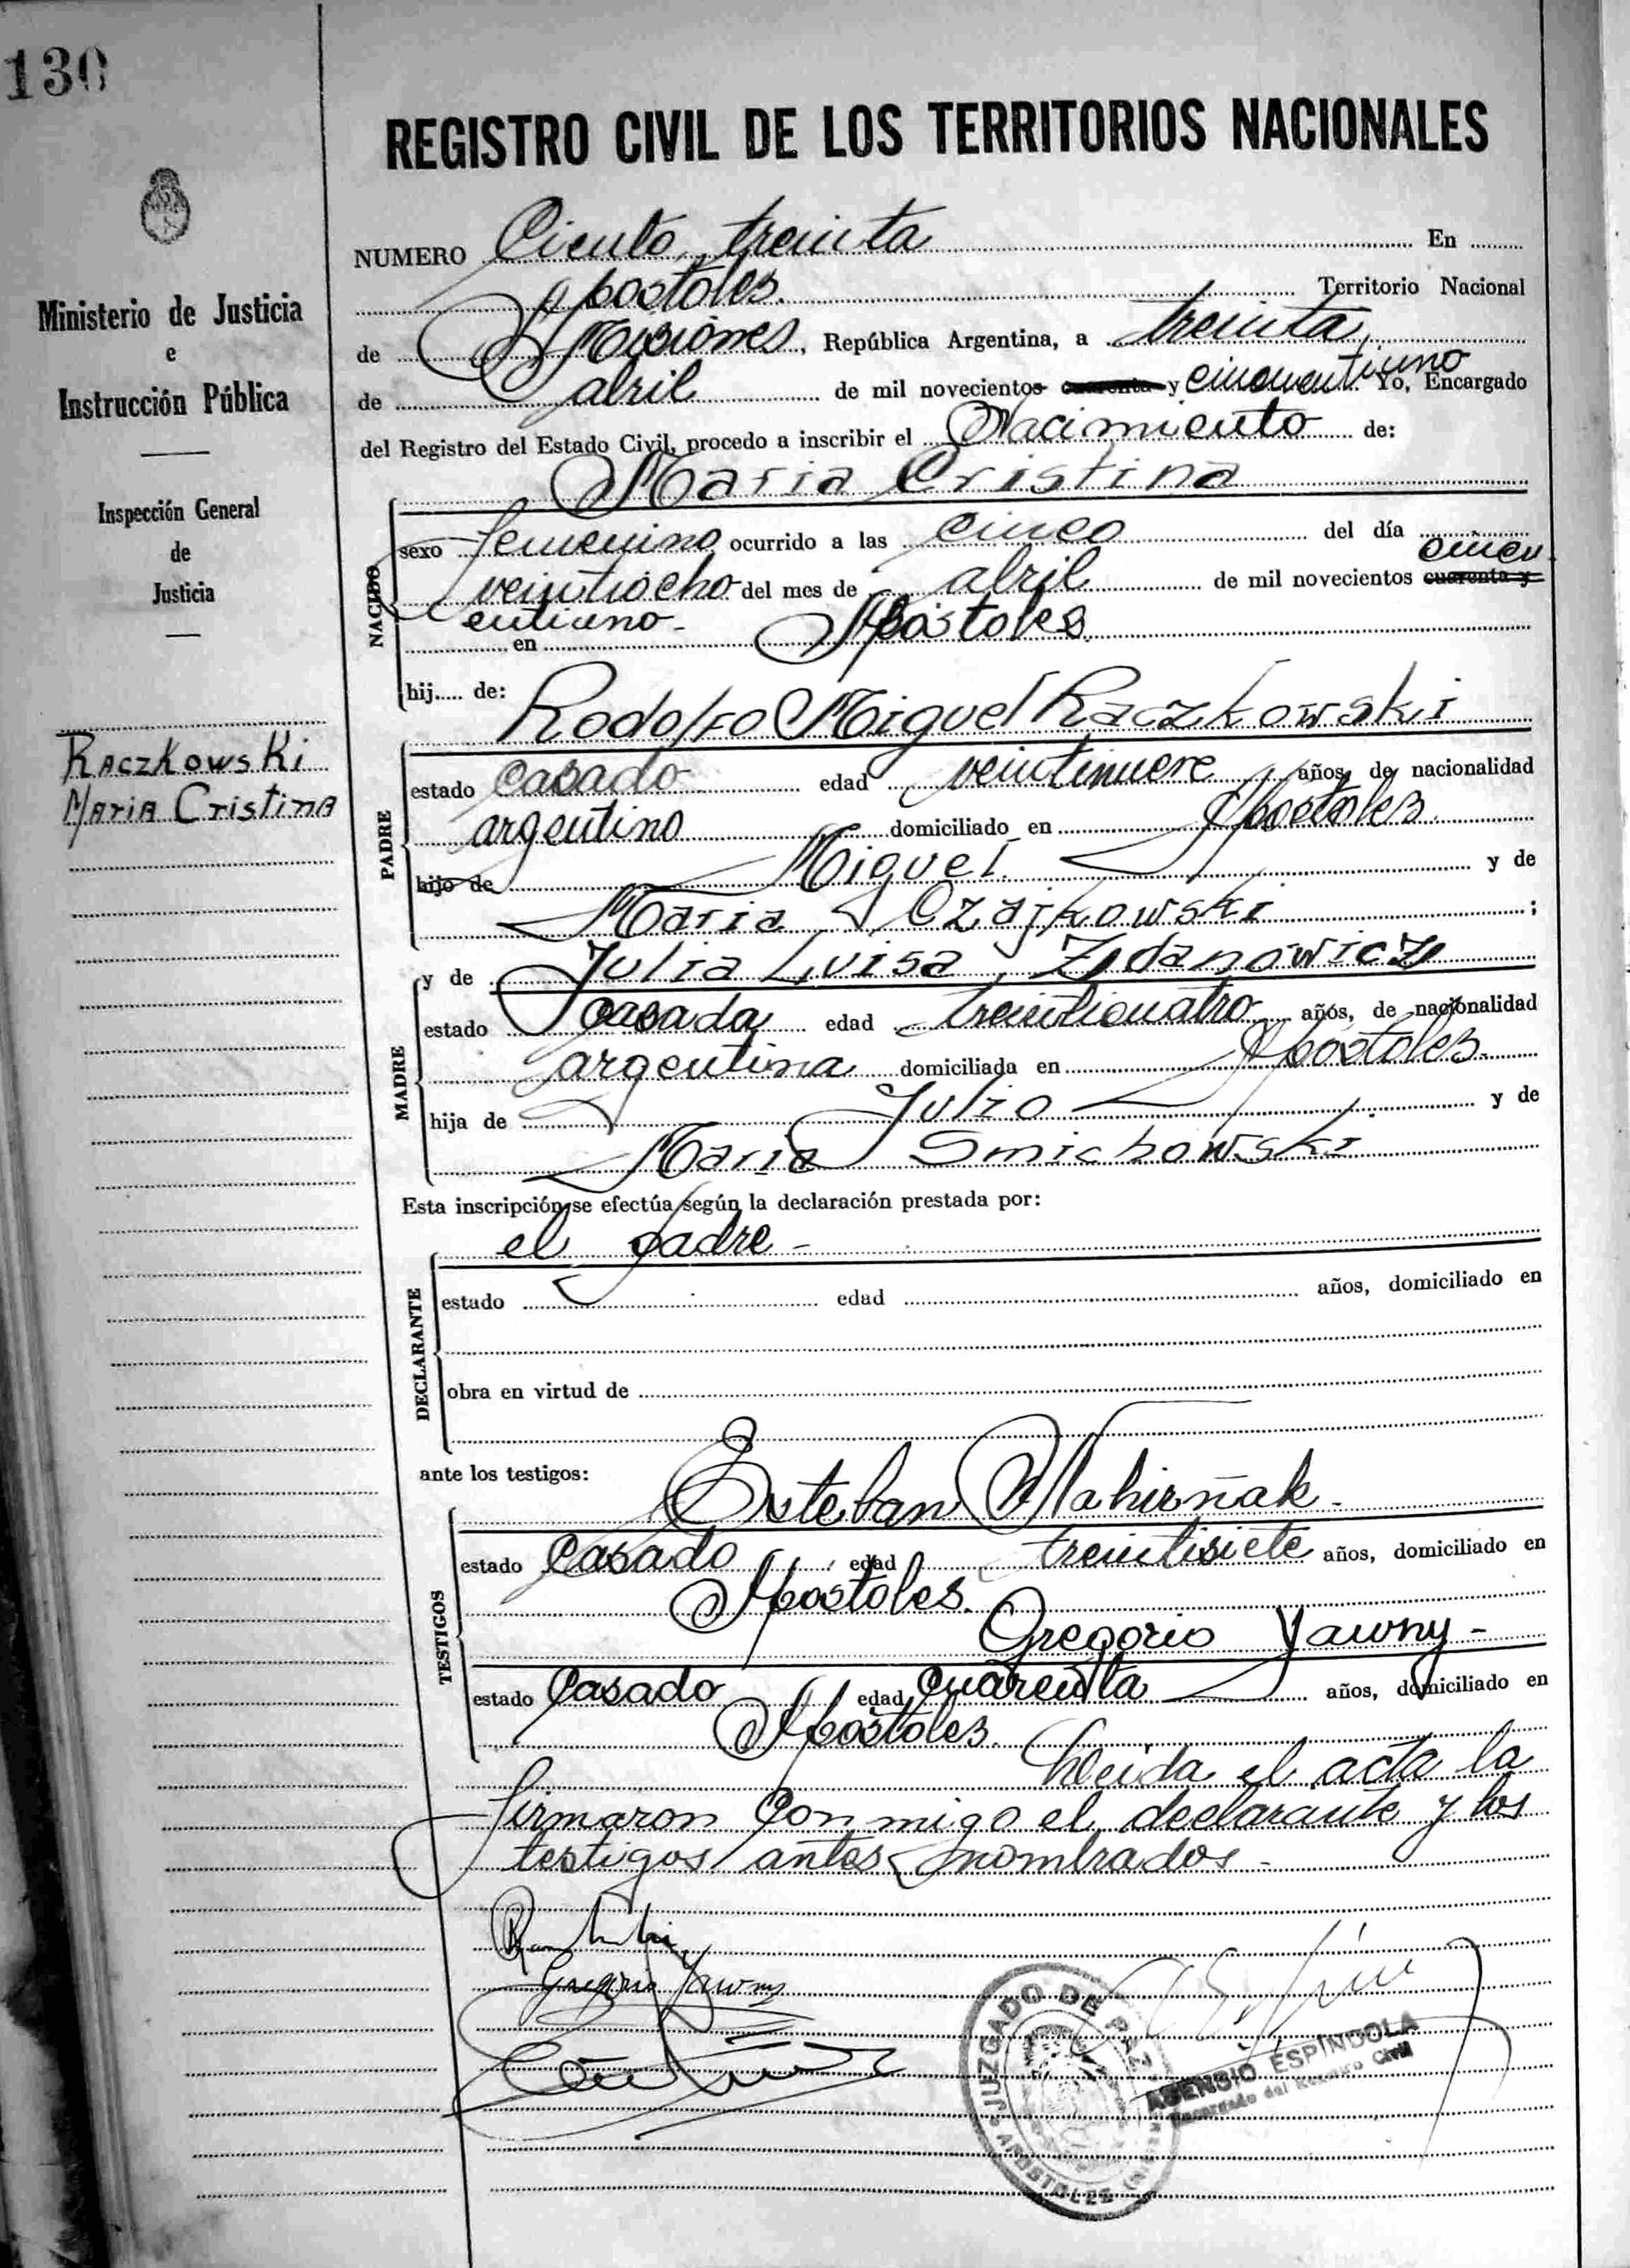 130
REGISTRO CIVIL DE LOS TERRITORIOS NACIONALES
Ministerio de Justicia
e
Instrucción Pública
Inspección General
de
Justicia
Raczkowski
Maria Cristina
NUMERO Ciento treinta En
Apostoles. Territorio Nacional
de Misiones, República Argentina, a treinta
de abril de mil novecientos cuarenta y cincuentiuno Yo, Encargado
del Registro del Estado Civil, procedo a inscribir el Nacimiento de:
Maria Cristina
NACIDO
sexo femenino ocurrido a las cinco del día
veintiocho del mes de abril de mil novecientos cuarenta y cincu
entiuno - en Apostoles.
hij..... de:
Rodolfo Miguel Raczkowski
PADRE
estado casado edad veintinueve años, de nacionalidad
argentino domiciliado en Apostoles
hijo de Miguel y de
Maria Czajkowski ;
y de Julia Luisa Zdanowicz
MADRE
estado casada edad treinticuatro años, de nacionalidad
argentina domiciliada en Apostoles.
hija de Julio y de
Maria Smichowski
Esta inscripción se efectúa según la declaración prestada por:
el padre -
DECLARANTE
estado edad años, domiciliado en
obra en virtud de
ante los testigos:
Esteban Nahirñak -
TESTIGOS
estado casado edad treintisiete años, domiciliado en
Apostoles.
Gregorio Yawny -
estado casado edad cuarenta años, domiciliado en
Apostoles.
Leida el acta la
firmaron conmigo el declarante y los
testigos antes nombrados -
Gregorio Yawny
JUZGADO DE PAZ
APOSTOLES
ASENSIO ESPINDOLA
Encargado del Registro Civil